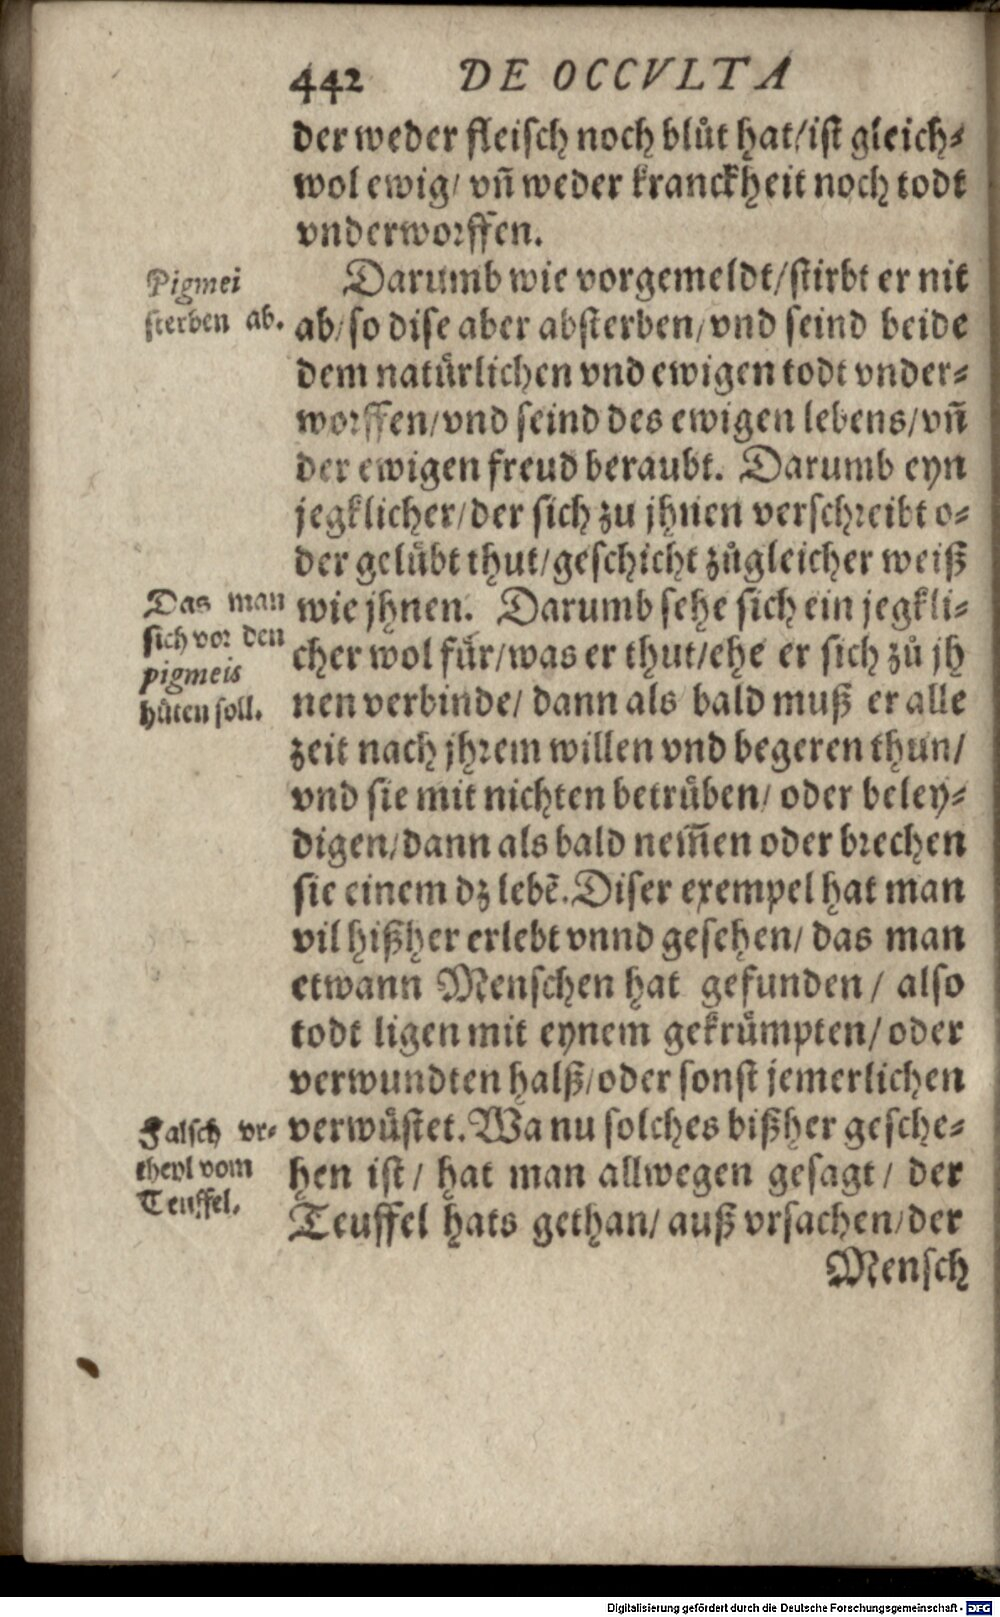 442 DE OCCVLTA
der weder fleisch noch blůt hat/ist gleich⸗
wol ewig/ vñ weder kranckheit noch todt
vnderworffen.
Pigmei
sterben ab.
Darumb wie vorgemeldt/stirbt er nit
ab/so dise aber absterben/vnd seind beide
dem natürlichen vnd ewigen todt vnder⸗
worffen/vnd seind des ewigen lebens/vñ
der ewigen freud beraubt. Darumb eyn
jegklicher/der sich zu jhnen verschreibt o⸗
der gelübt thut/geschicht zůgleicher weiß
Das man
sich vor den
pigmeis
hüten soll.
wie jhnen. Darumb sehe sich ein jegkli⸗
cher wol für/was er thut/ehe er sich zů jh
nen verbinde/ dann als bald muß er alle
zeit nach jhrem willen vnd begeren thun/
vnd sie mit nichten betrüben/ oder beley⸗
digen/dann als bald nem̃en oder brechen
sie einem dz lebẽ. Diser exempel hat man
vil hißher erlebt vnnd gesehen/ das man
etwann Menschen hat gefunden/ also
todt ligen mit eynem gekrümpten/ oder
verwundten halß/oder sonst jemerlichen
Falsch vr⸗
theyl vom
Teuffel.
verwüstet. Wa nu solches bißher gesche⸗
hen ist/ hat man allwegen gesagt/ der
Teuffel hats gethan/ auß vrsachen/der
Mensch
Digitalisierung gefördert durch die Deutsche Forschungsgemeinschaft - DFG